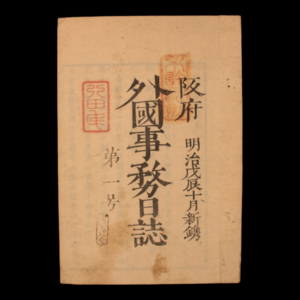 阪府
明治戊辰十月新鐫
外國事務日誌
第一号